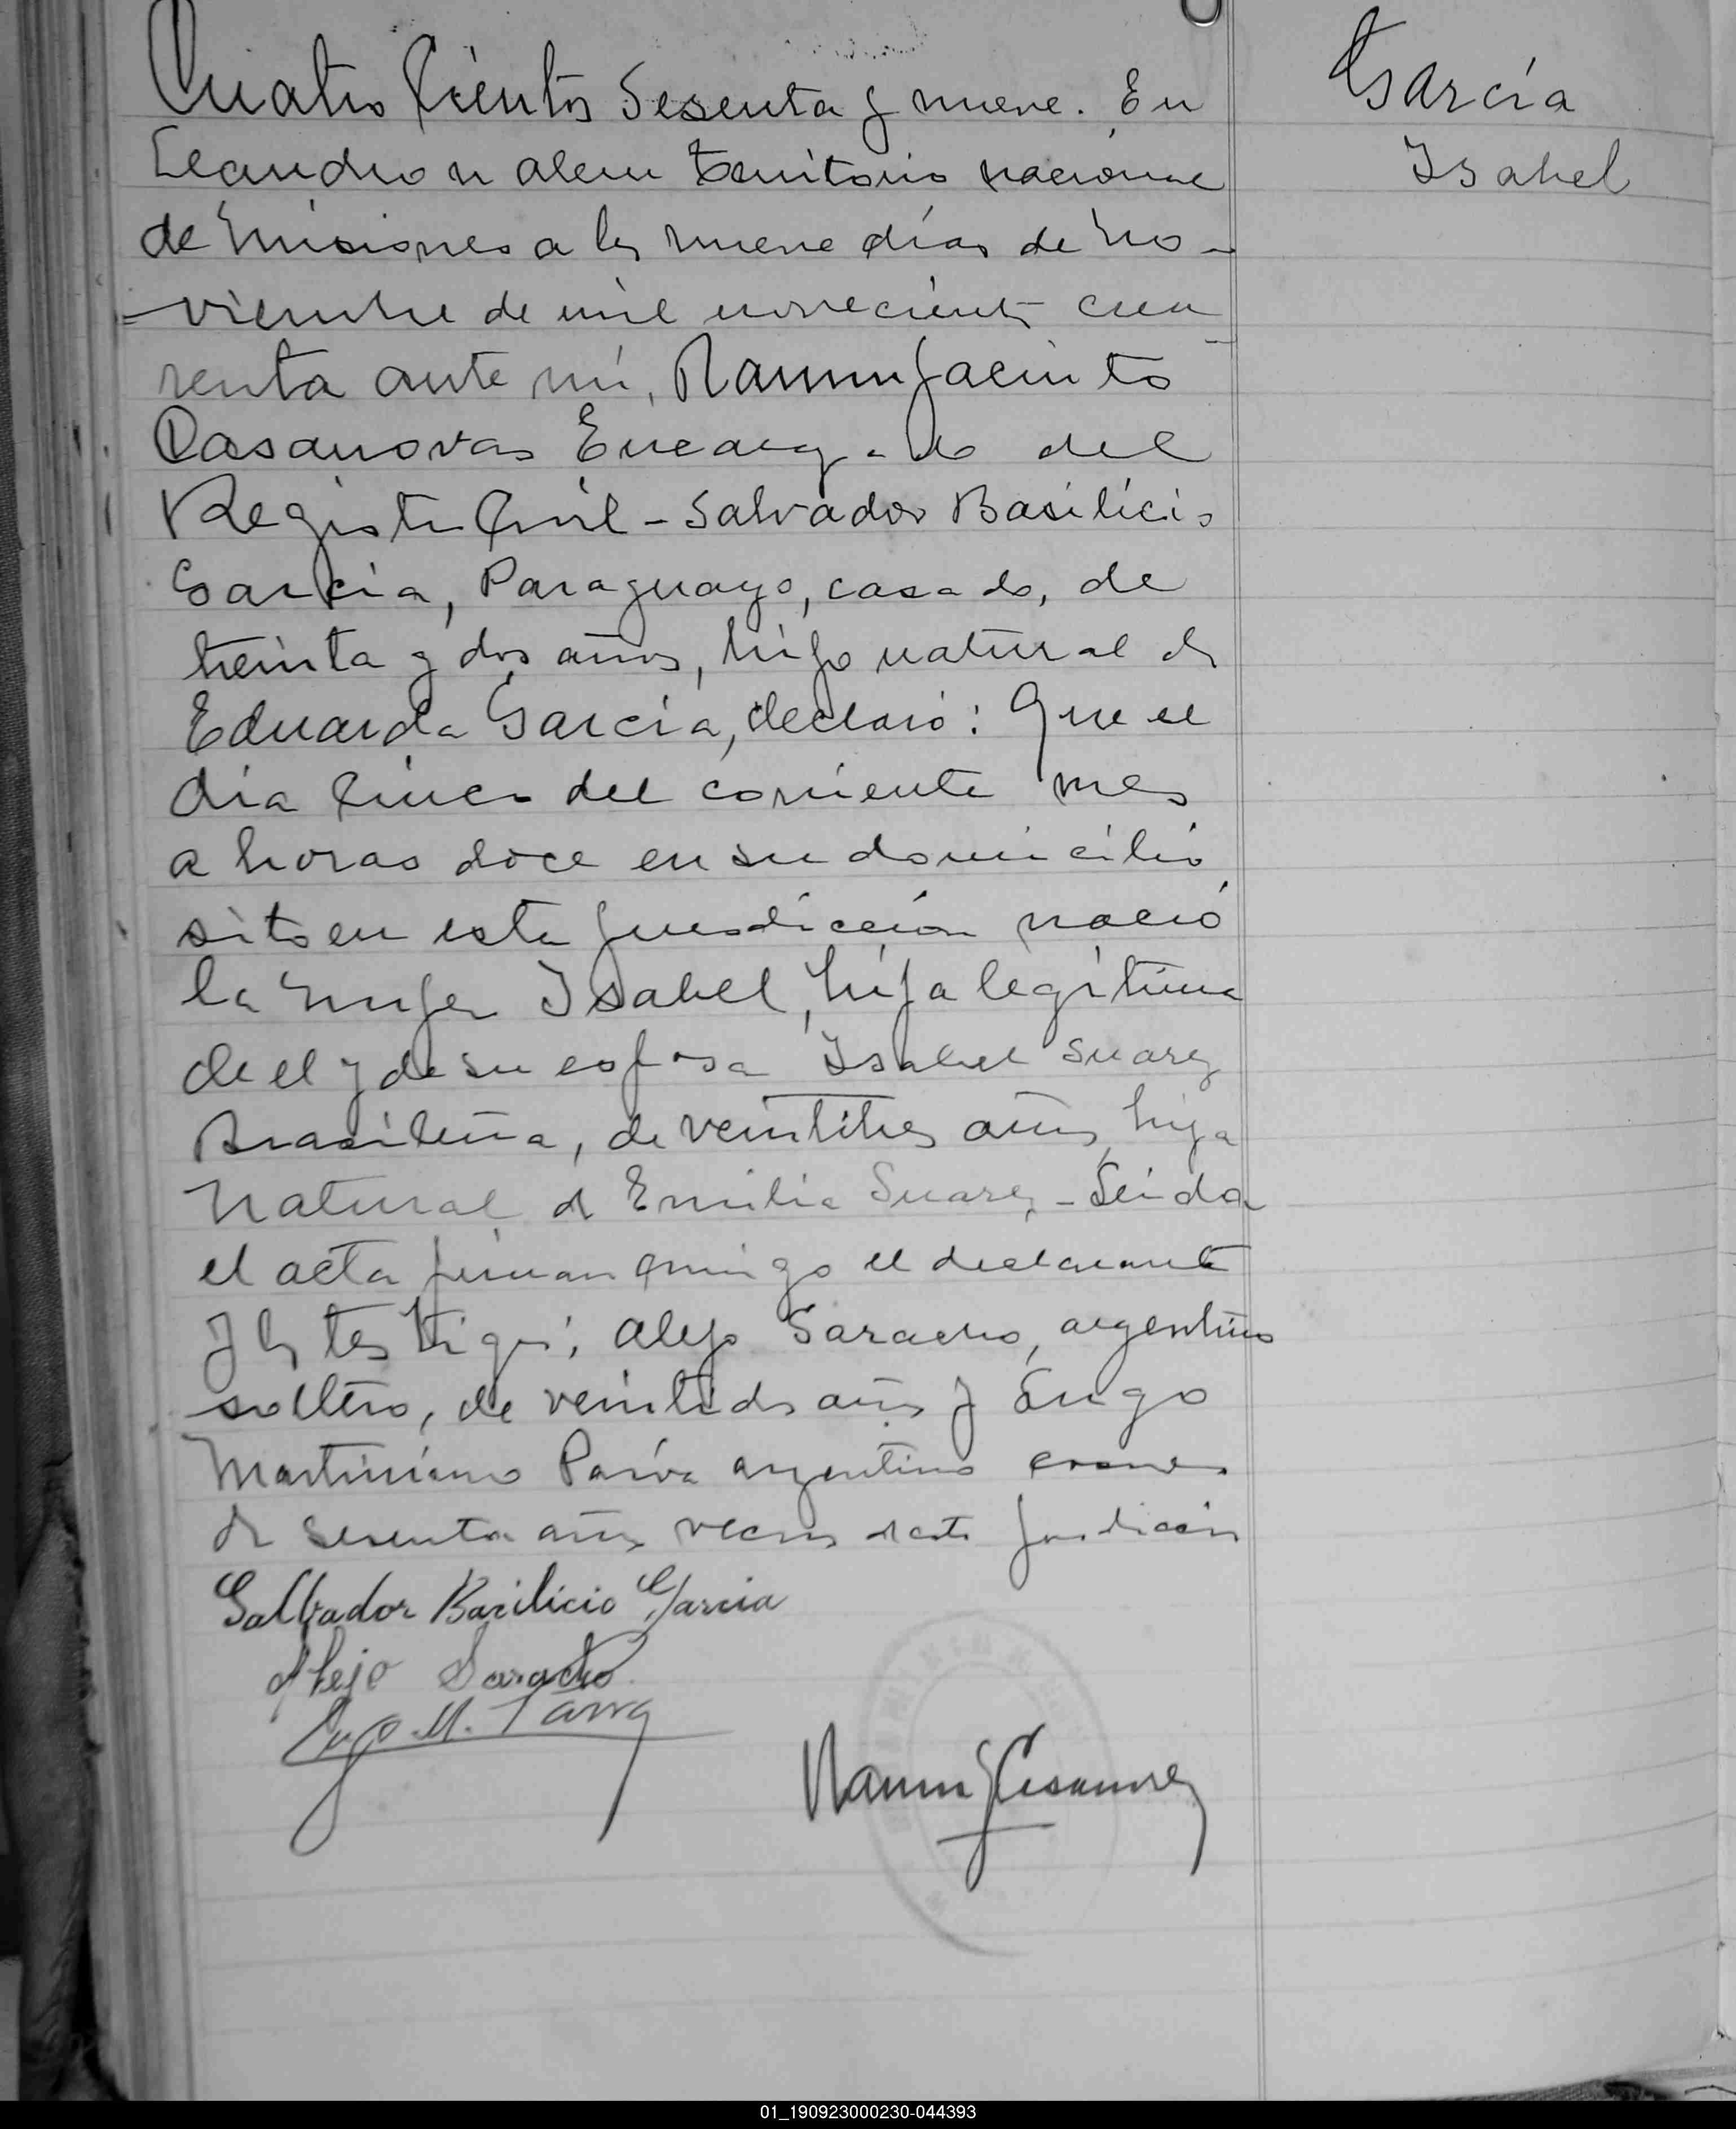 Cuatro Cientos Sesenta y nueve. En
García
Leandro n alem territorio nacional
Isabel
de Misiones a los nueve días de no-
=viembre de mil novecientos cua
renta ante mí, Ramon Jacinto
Casanovas Encargado del
Registro Civil - Salvador Basilicio
García, Paraguayo, casado, de
treinta y dos años, hijo natural de
Eduarda García, declaró: Que el
día Cinco del corriente mes
a horas doce en su domicilio
sito en esta jurisdicción nació
la mujer Isabel, hija legítima
de el y de su esposa Isabel Suarez
Brasileña, de veintitres años, hija
natural de Emilia Suarez - Leida
el acta firman conmigo el declarante
y los testigos: Alejo Saracho, argentino
soltero, de veintidos años y
Martiniano argentino
de sesenta años vecinos de esta jurisdicción
Salbador Basilicio Garcia
Alejo Saracho
Ramon J Casanovas
01_190923000230-044393